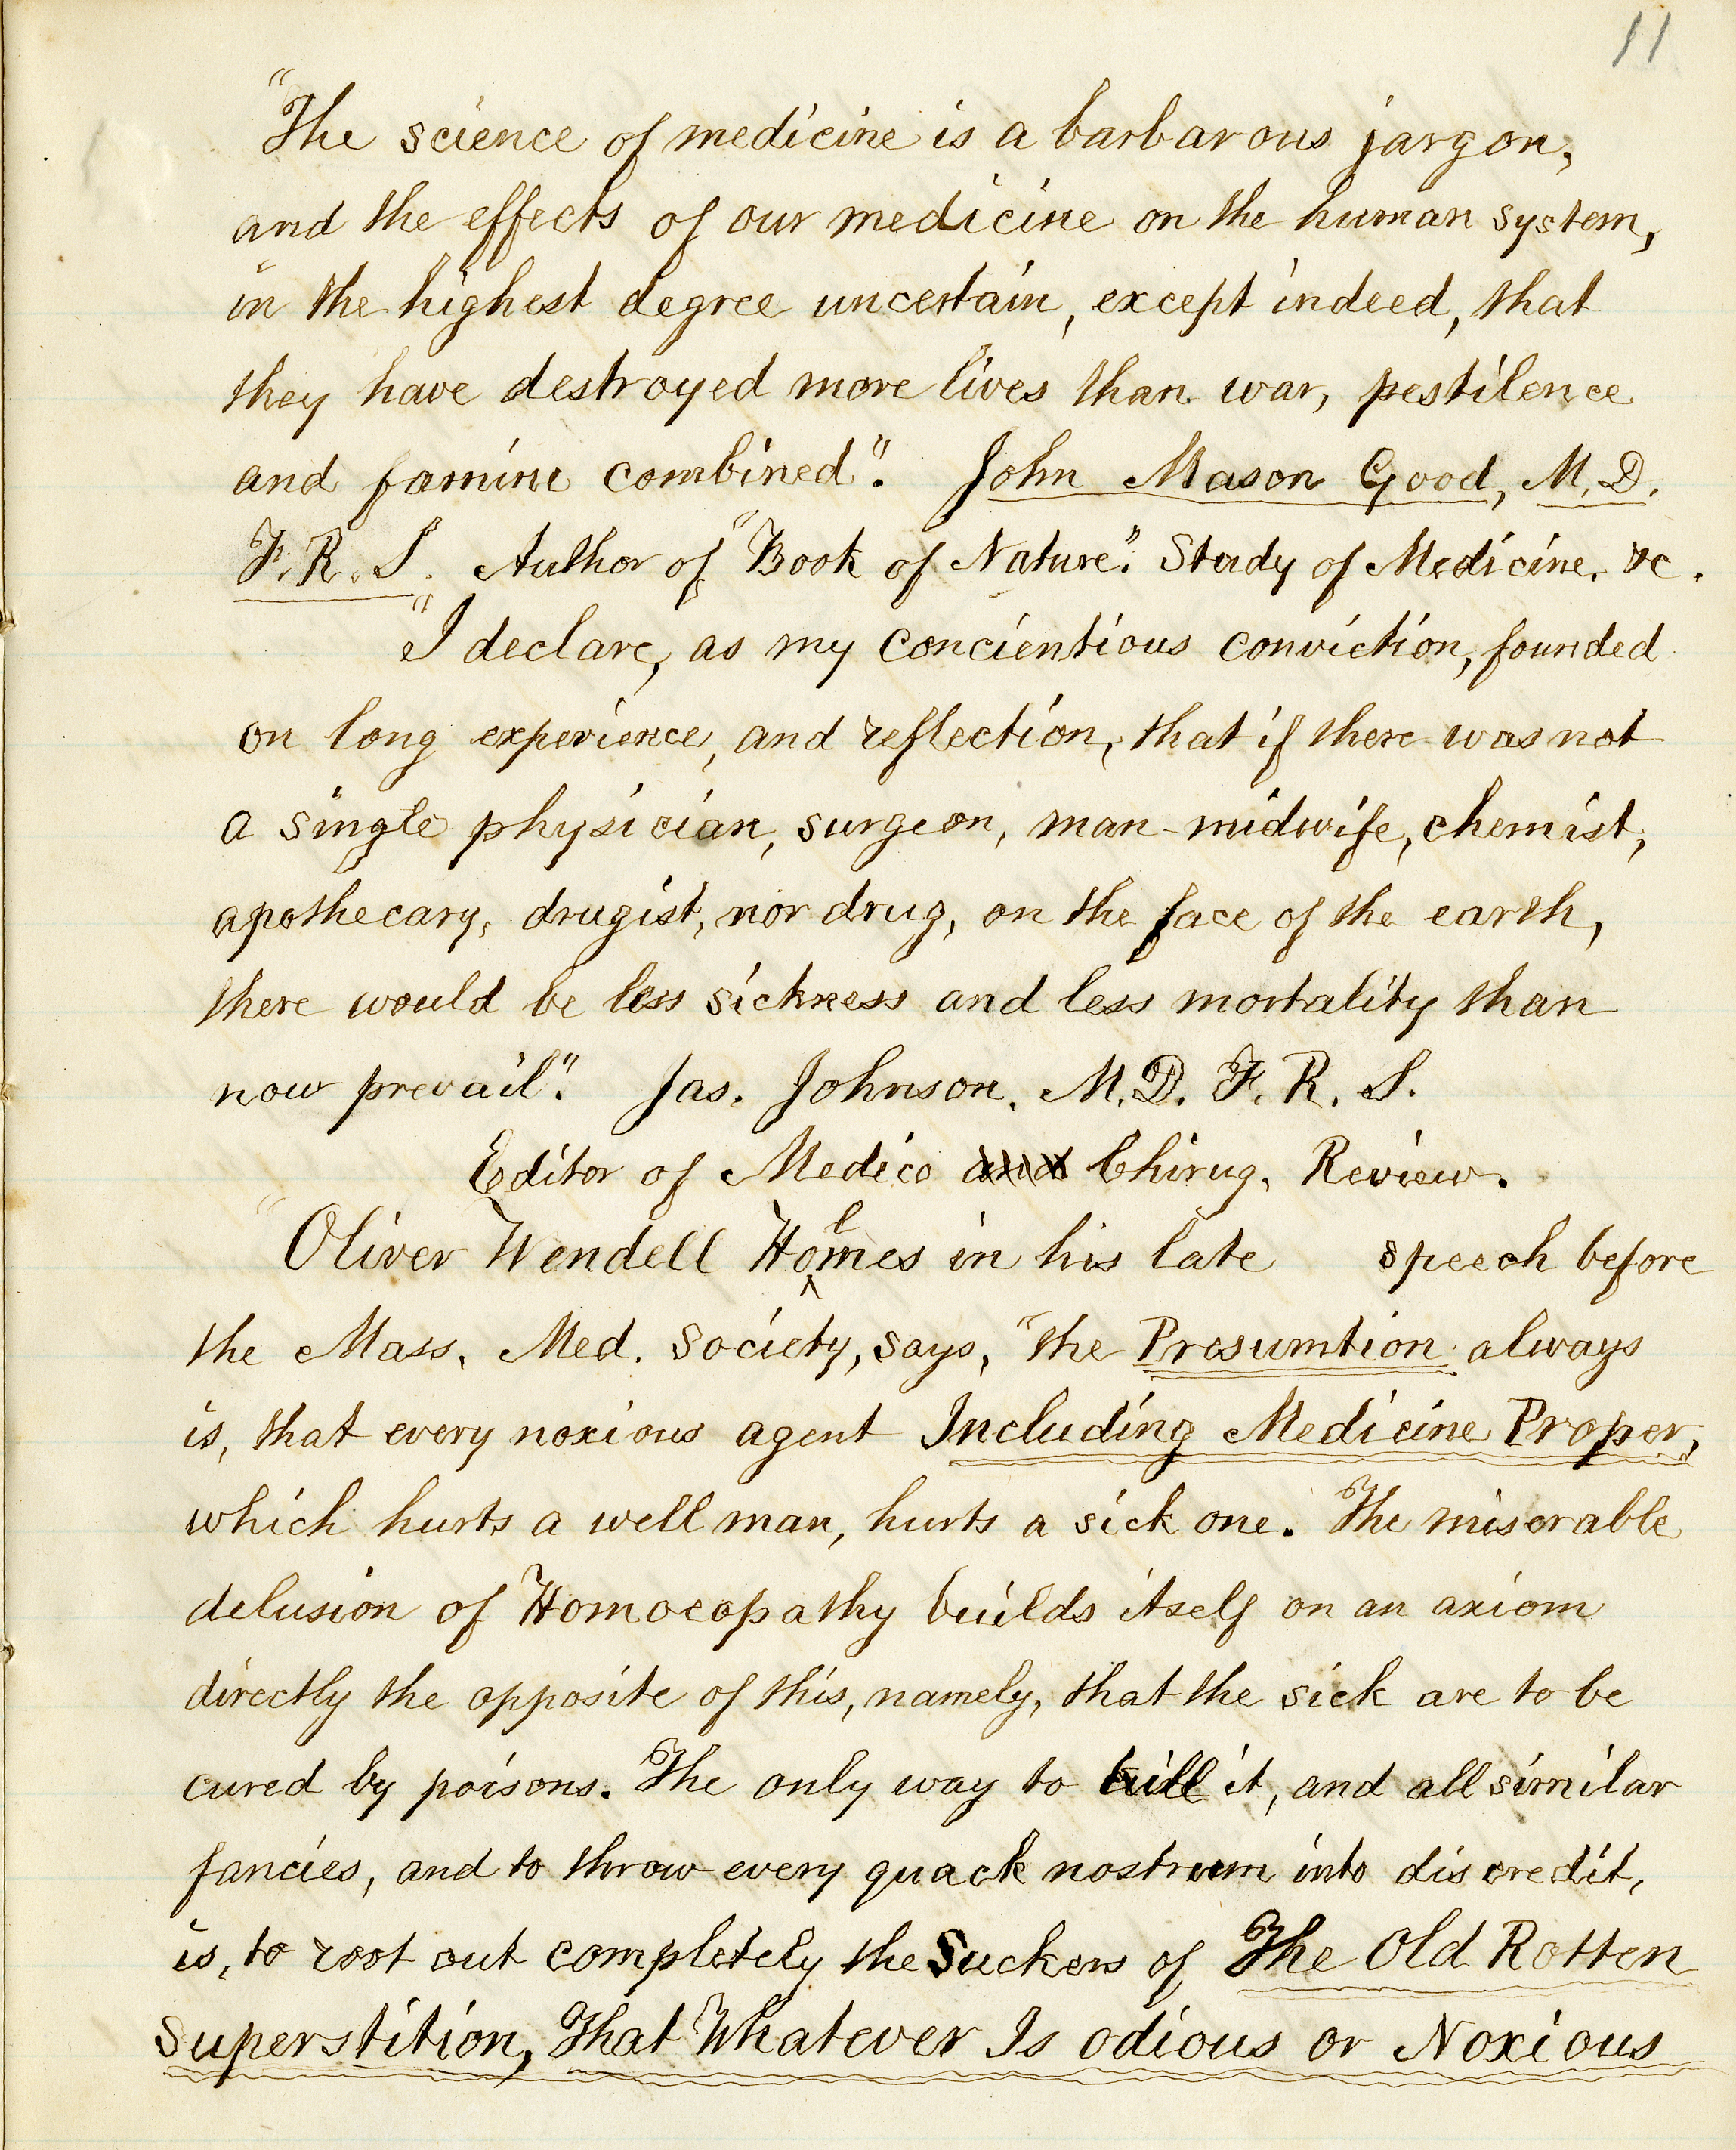 11
"The science of medicine is a barbarous jargon,
and the effects of our medicine on the human system,
in the highest degree uncertain, except indeed, that
they have destroyed more lives than war, pestilence
and famine combined". John Mason Good, M.D.
F.R.S. Author of "Book of Nature". Study of Medicine. &c.
"I declare, as my concientious conviction, founded
on long experience, and reflection, that if there was not
a single physician, surgeon, man-midwife, chemist,
apothecary, drugist, nor drug, on the face of the earth,
there would be less sickness and less mortality than
now prevail". Jas. Johnson. M.D. F.R.S.
Editor of Medico and Chirug. Review.
"Oliver Wendell Holmes in his late speech before
the Mass. Med. Society, says, "the Presumtion always
is, that every noxious agent Including Medicine Proper,
which hurts a well man, hurts a sick one. The miserable
delusion of Homoeopathy builds itself on an axiom
directly the opposite of this, namely, that the sick are to be
cured by poisons. The only way to kill it, and all similar
fancies, and to throw every quack nostrum into discredit,
is, to root out completely the Suckers of The Old Rotten
Superstition, That Whatever Is odious or Noxious